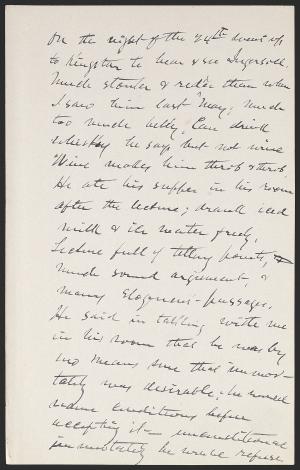 On the night of the 24th went up
to Kingston to hear & see Ingersoll.
Much stouter & redder than when
I saw him last May; much
too much belly. Can drink
whiskey he says but not wine
Wine makes him throb & throb.
He ate his supper in his room
after the lecture; drank iced
milk & ice water freely.
Lecture full of telling points, &
much sound argument, &
many eloquent passages.
He said in talking with me
in his room that he was by
no means sure that immor-
tality was desirable; he would
name conditions before
accepting it — unconditional
immortality he would refuse